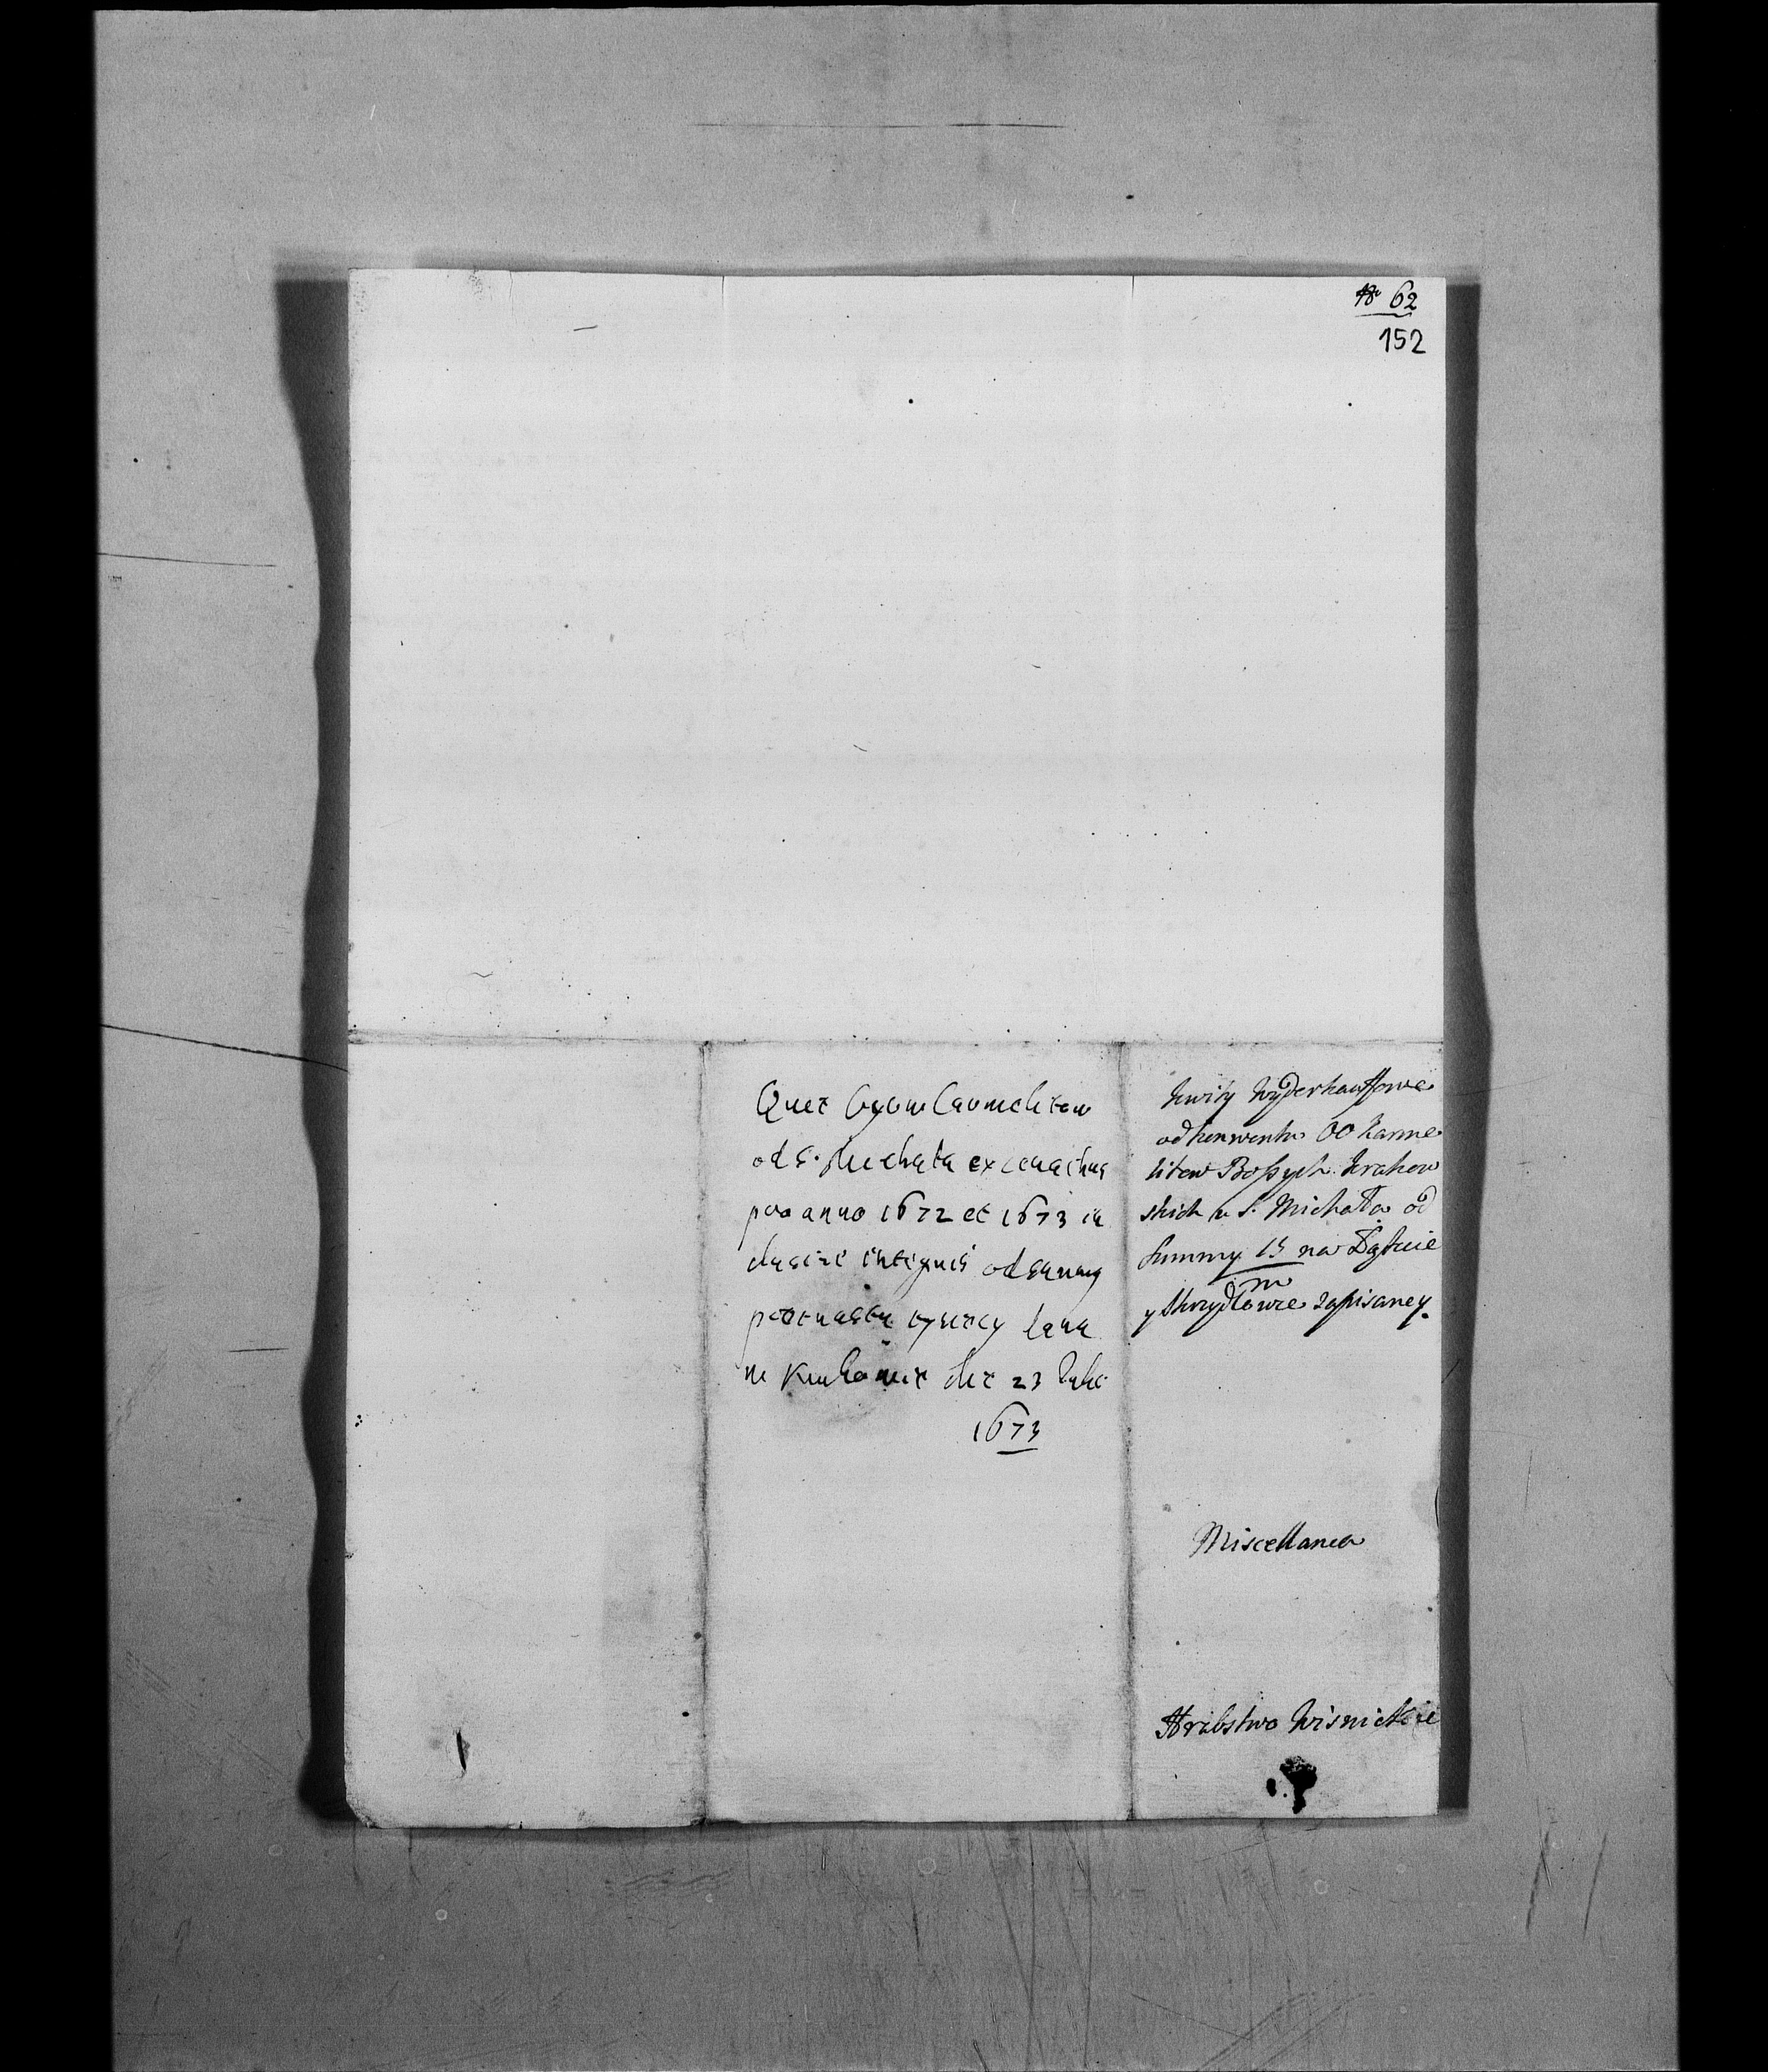 62
152
Quet Oycow Carmelitow
od S. Michała ex censibus
pro anno 1672 et 1673 in
clusive od summy
tysięcy dana
w Krakowie die 23 Julii
1673
Kwity Wyderkauffowe
od konwentu OO Karme
litow Bossych Krakow
skich u S. Michała od
Summy 15 na Łąkcie
m
y zapisaney.
Miscellanea
Hrabstwo Wisnickie